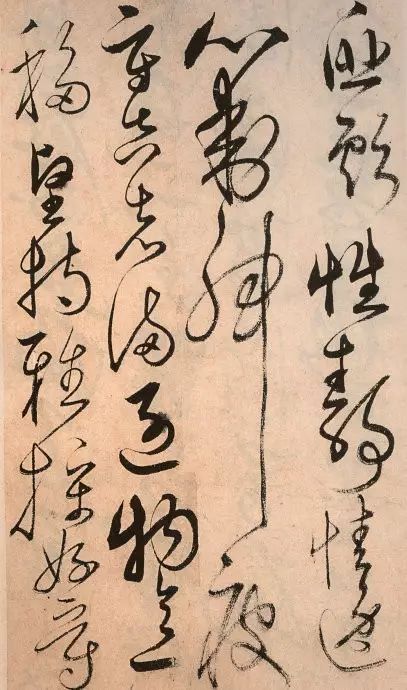 匪虧性靜情逸
心動神疲
守真志滿逐物意
移堅持雅操好爵